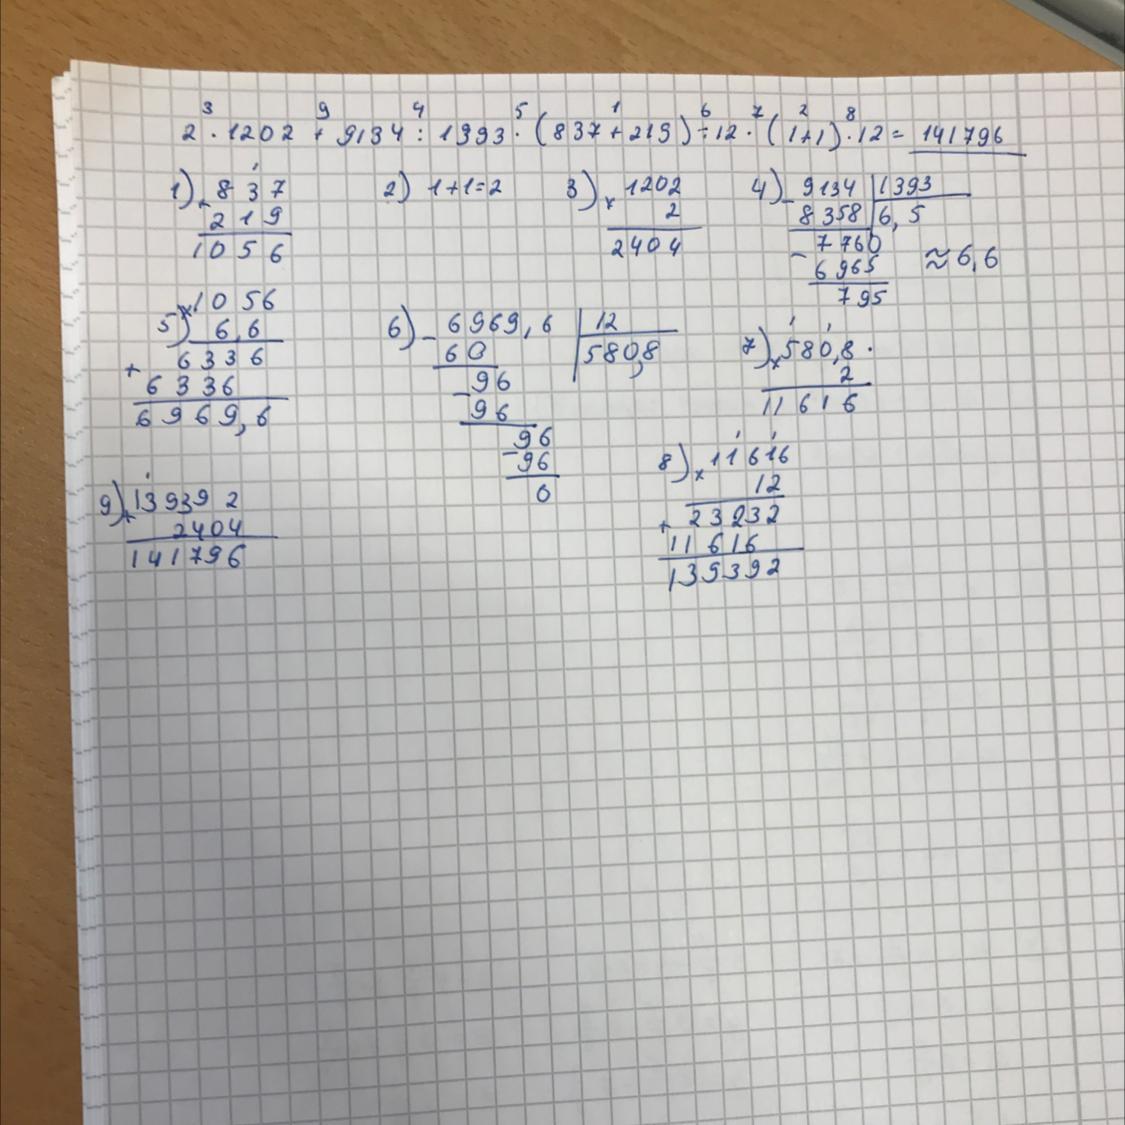 3 9 4 5 1 6 7 2 8
2 · 1202 + 9134 : 1393 · (837 + 219) ÷ 12 · (1+1) · 12 = 141796
1) + 837
219
1056
2) 1+1=2
3) × 1202
2
2404
4) - 9134 | 1393
8358 | 6,5
- 7760
6965
795
≈ 6,6
5) × 1056
6,6
+ 6336
6336
6969,6
6) - 6969,6 | 12
60 | 580,8
- 96
96
- 96
96
0
7) × 580,8
2
11616
8) × 11616
12
+ 23232
11616
139392
9) + 139392
2404
141796